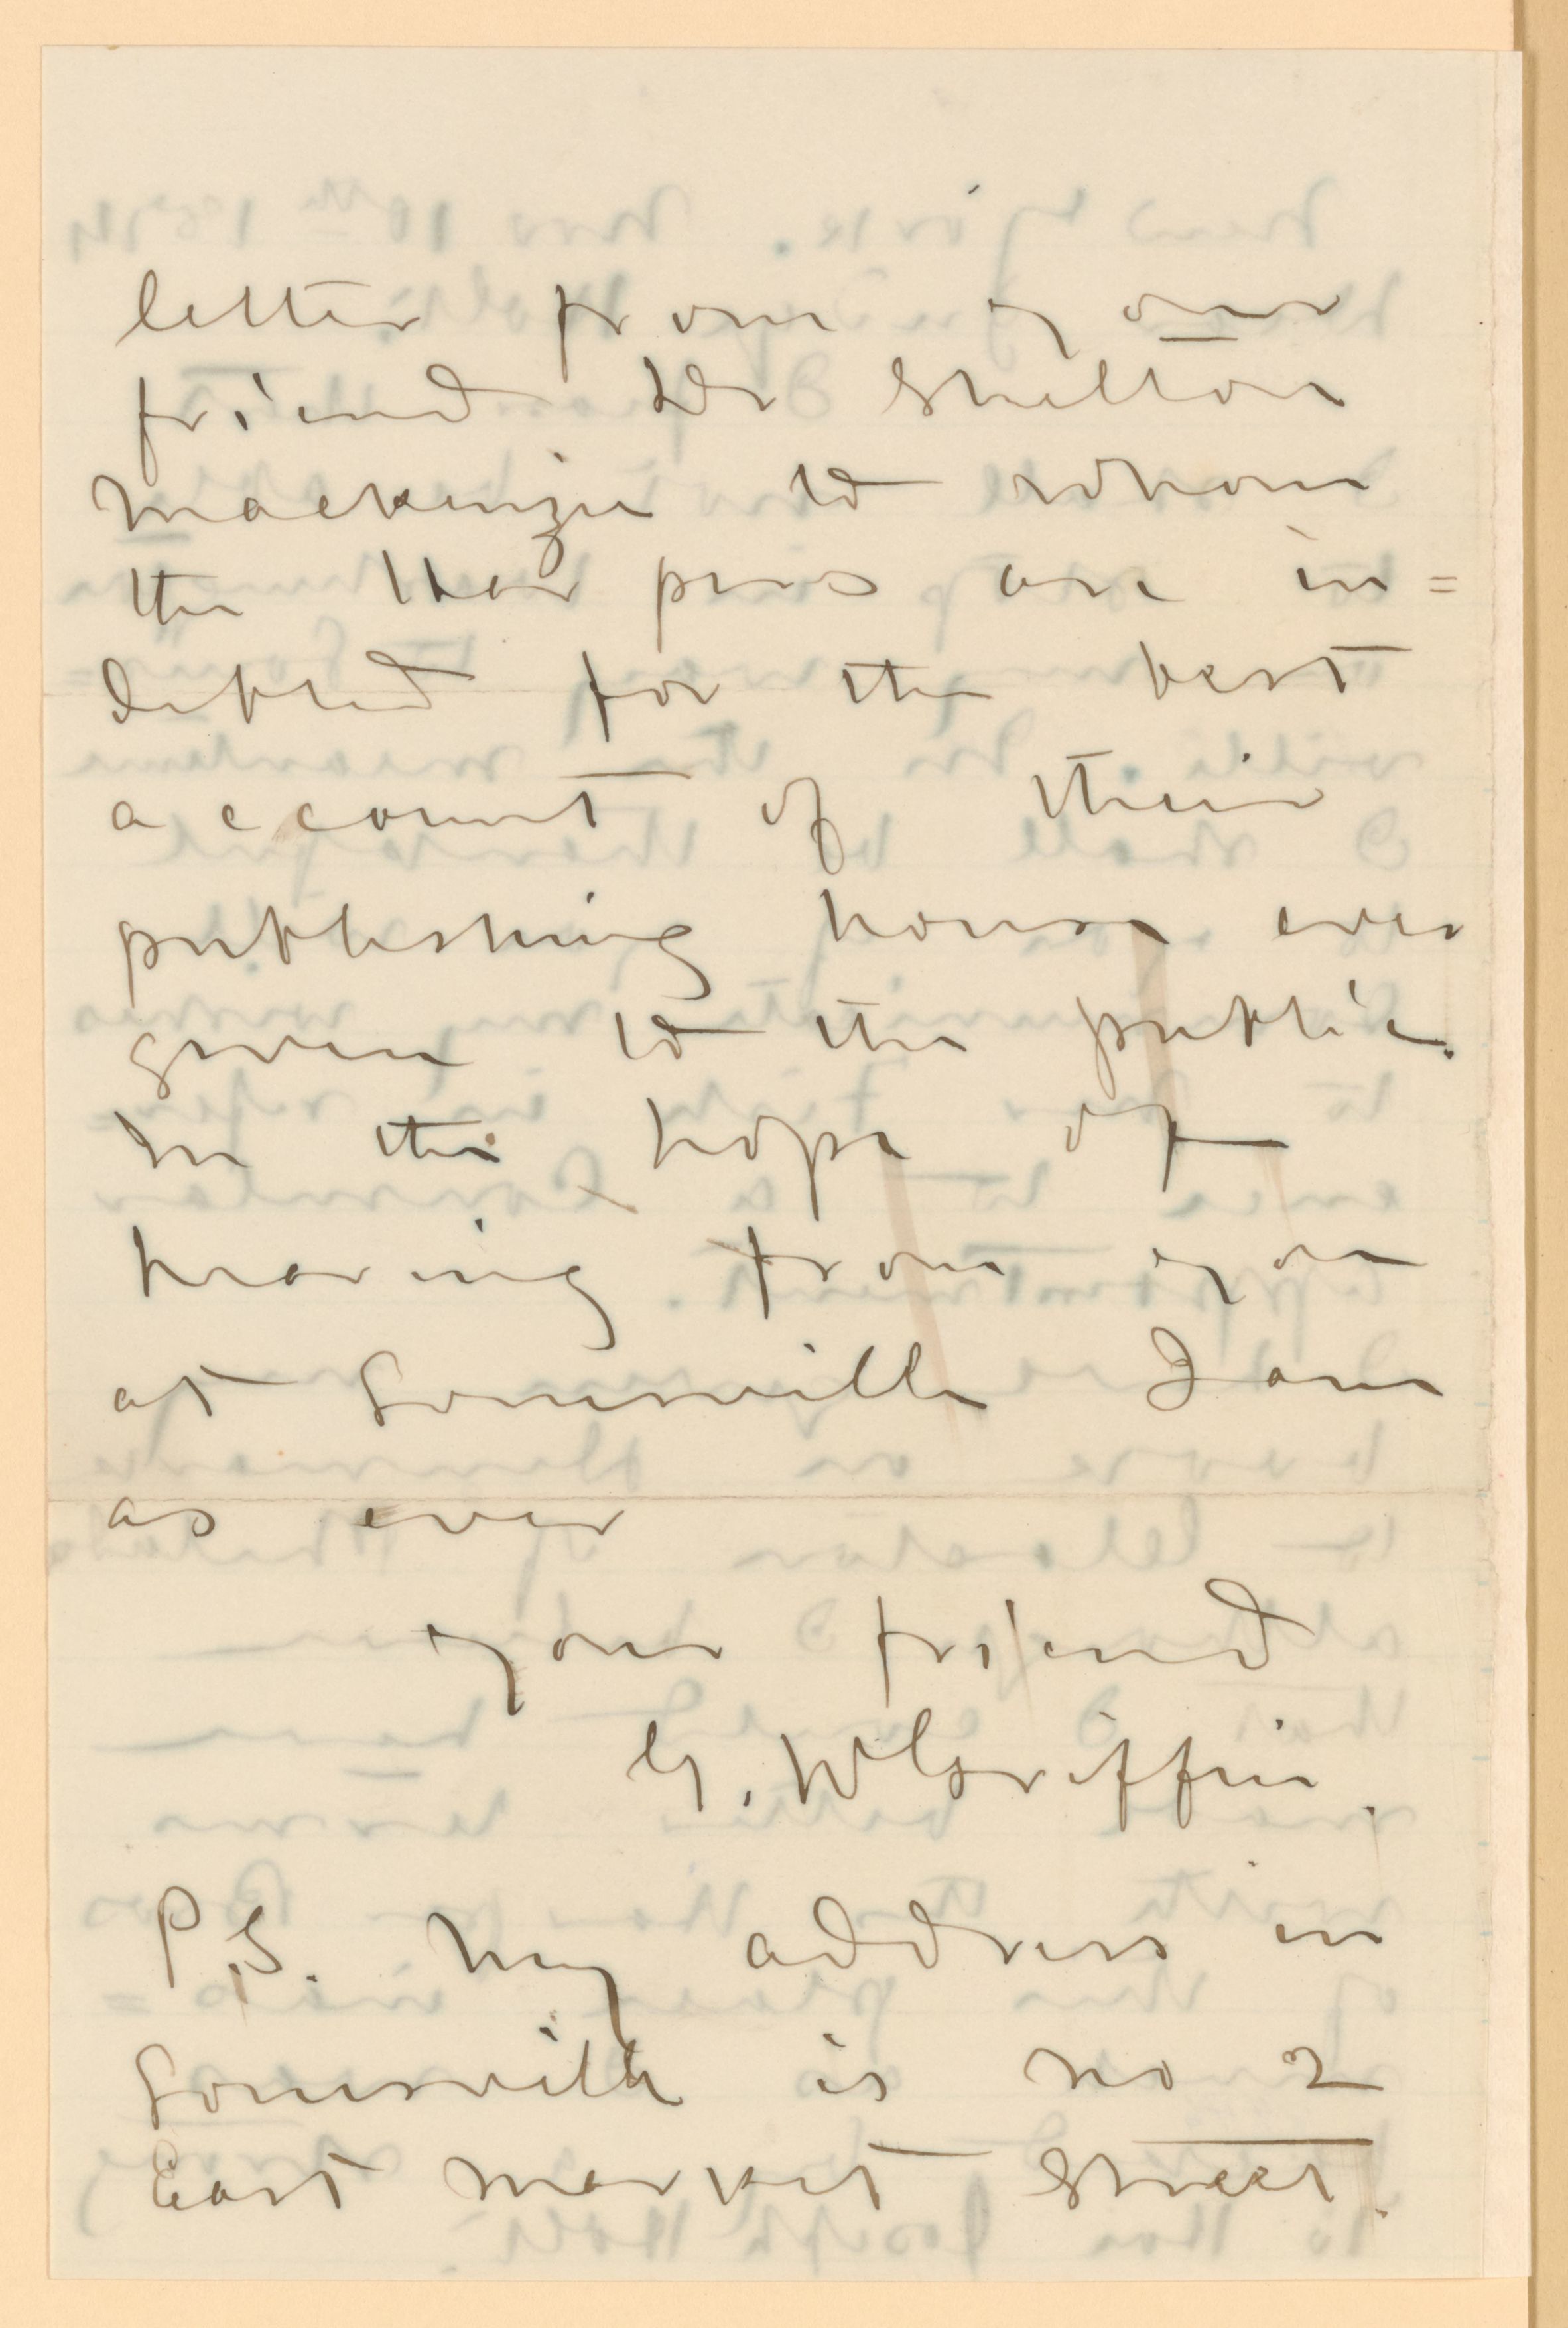 letter from your
friend Dr Shelton
Mackenzie to whom
the Harpers are in=
debted for the best
account of their
publishing house ever
given to the public.
In the hope of
hearing from you
at Louisville I am
as ever
your friend
G. W Griffin.
P.S. My address in
Louisville is no 2
East Market Street.